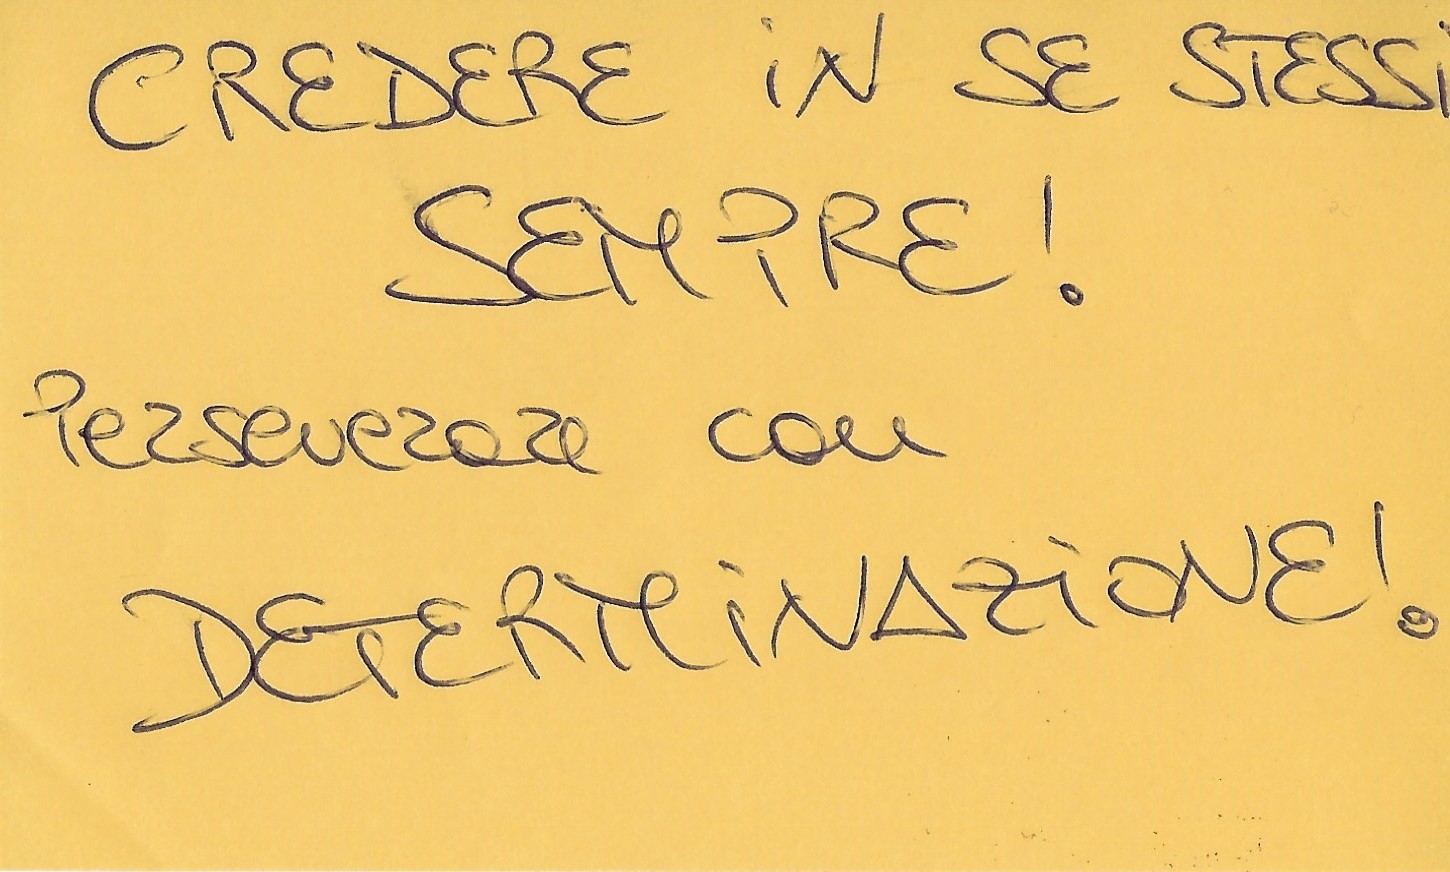 CREDERE iN SE STESSI
SEMPRE!
Perseverare con
DETERMiNAZiONE!